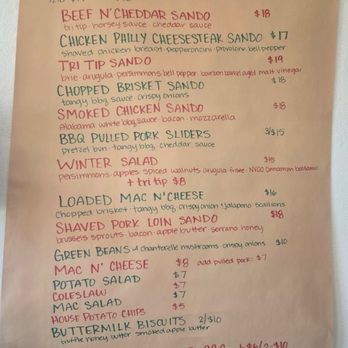 BEEF N' CHEDDAR SANDO $18
tri tip horsey sauce cheddar sauce
CHICKEN PHILLY CHEESESTEAK SANDO $17
shaved chicken breast pepperoncini provolone bell pepper
TRI TIP SANDO $19
brie arugula persimmons bell pepper bourbon barrel aged malt vinegar
CHOPPED BRISKET SANDO $18
tangy bbq sauce crispy onions
SMOKED CHICKEN SANDO $18
alabama white bbq sauce bacon mozzarella
BBQ PULLED PORK SLIDERS 3/$15
pretzel bun tangy bbq cheddar sauce
WINTER SALAD $15
persimmons apples spiced walnuts arugula frisee cinnamon balsamic
+ tri tip $8
LOADED MAC N' CHEESE $16
chopped brisket tangy bbq crispy onion jalapeno scallions
SHAVED PORK LOIN SANDO $18
brussels sprouts bacon apple butter serrano honey
GREEN BEANS w/ chanterelle mushrooms crispy onions $10
MAC N' CHEESE $8 add pulled pork $7
POTATO SALAD $7
COLESLAW $7
MAC SALAD $7
HOUSE POTATO CHIPS $5
BUTTERMILK BISCUITS 2/$10
truffle honey butter smoked apple butter